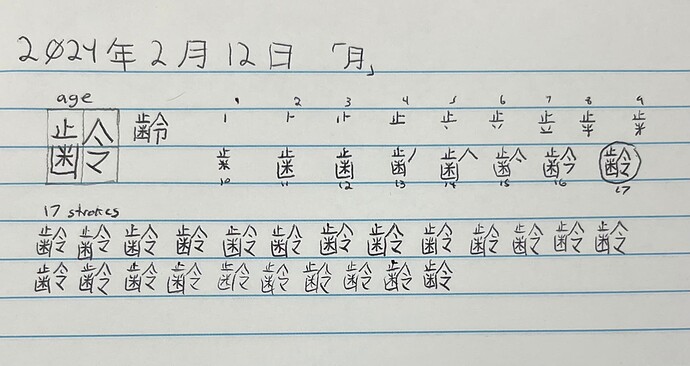 2024年2月12日 「月」
age 1 2 3 4 5 6 7 8 9
齢 齢 止
齢
10 11 12 13 14 15 16 17
17 strokes
齢 齢 齢 齢 齢 齢 齢 齢 齢 齢 齢 齢 齢
齢 齢 齢 齢 齢 齢 齢 齢 齢 齢